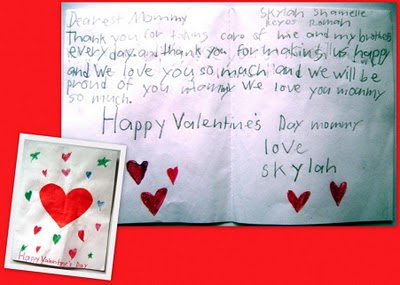 Dearest Mommy
Skylah Shanielle
Reyes Roman
Thank you for taking care of me and my brother
every day and thank you for making us happy
and We love you so much and we will be
proud of you mommy We love you mommy
so much.
Happy Valentine's Day mommy
love
skylah
Happy Valentine's Day